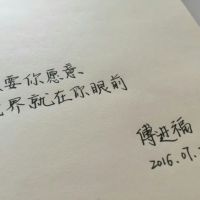 要你愿意、
界就在你眼前
傅进福
2016.07.